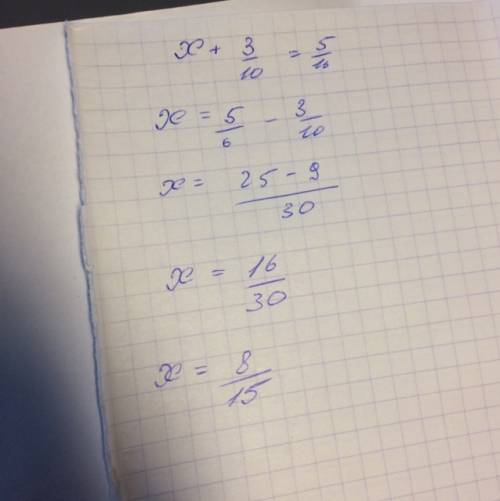 x + 3/10 = 5/16
x = 5/6 - 3/10
x = 25 - 9/30
x = 16/30
x = 8/15